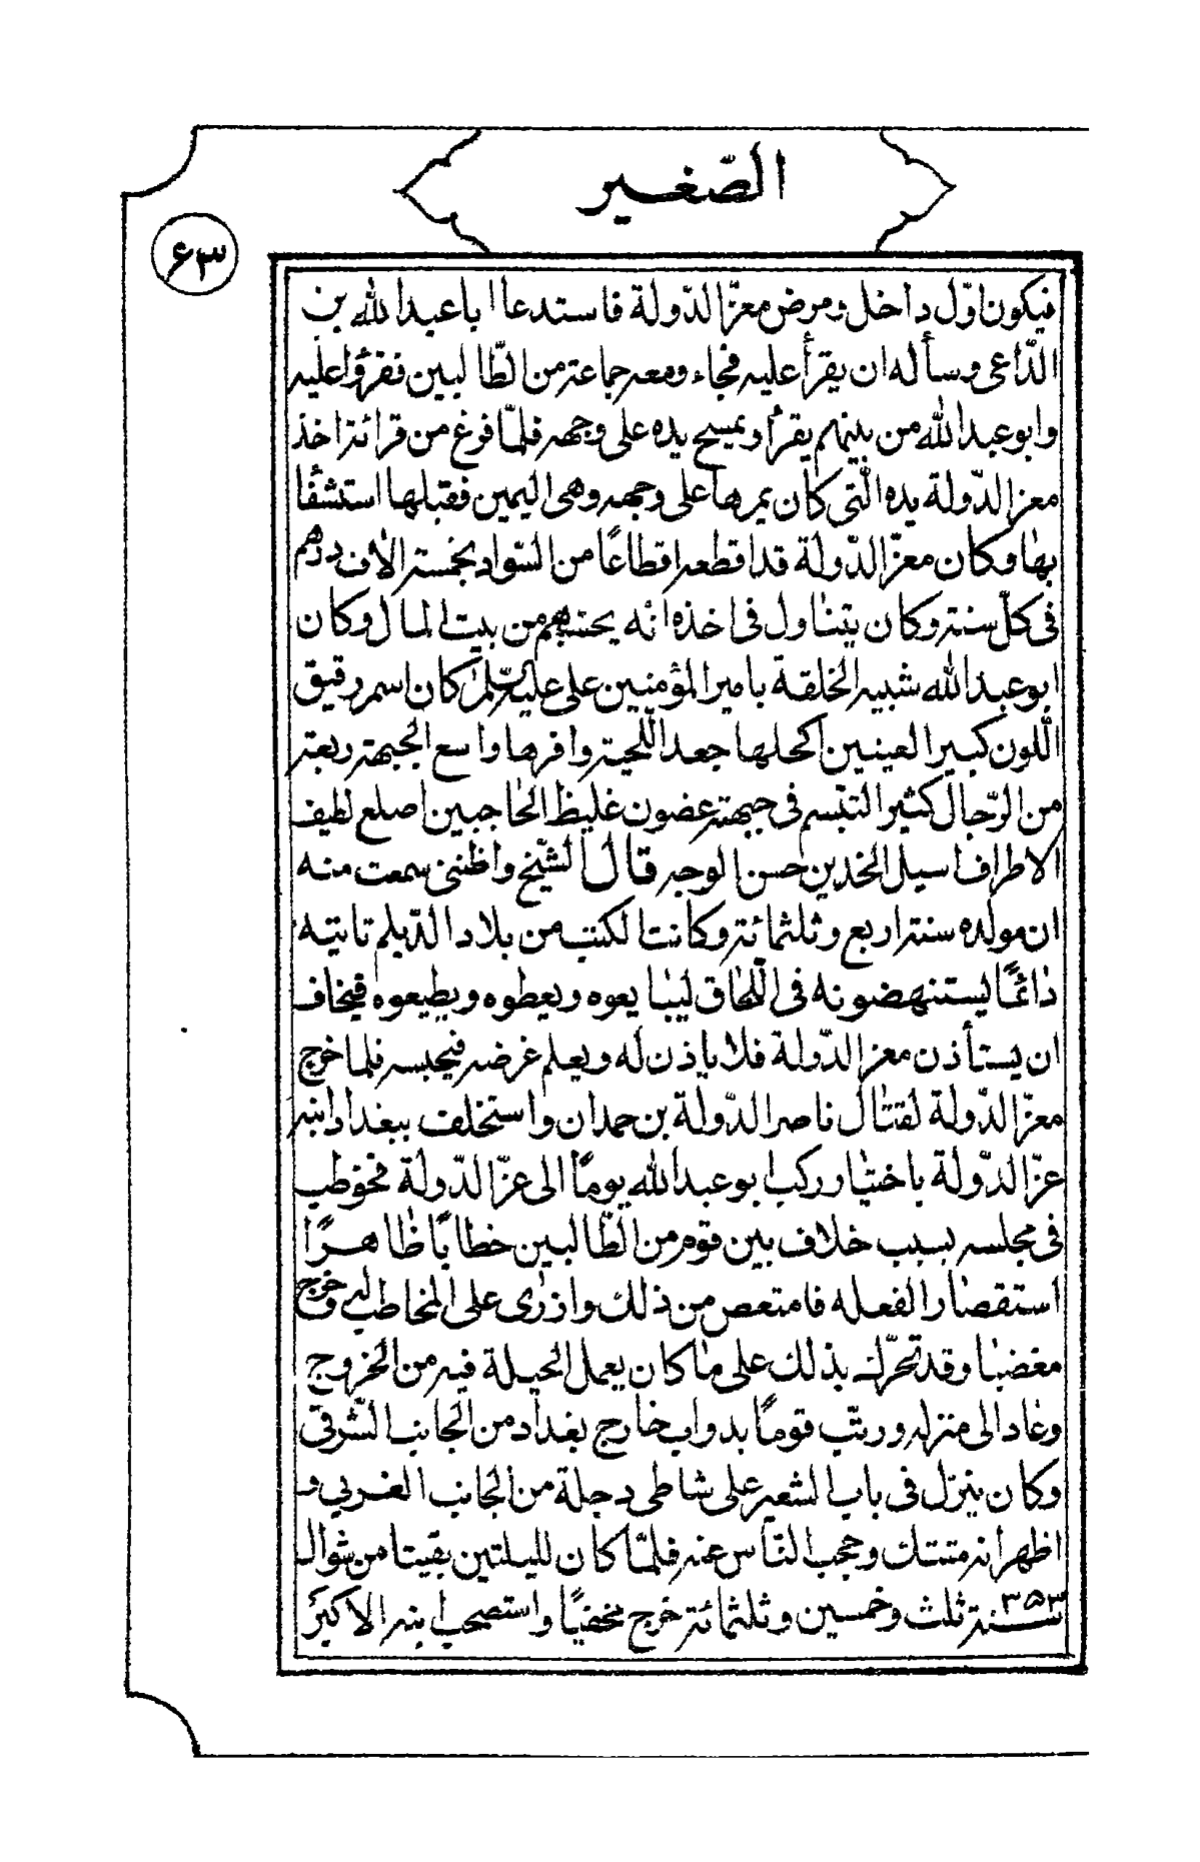 الصّغير
۶۳
فيكون اوّل داخل ومرض معزّ الدّولة فاستدعا ابا عبد الله بن
الدّاعى وسأله ان يقرأ عليه فجاء ومعه جماعة من الطّالبيين فقرؤا عليه
وابو عبد الله من بينهم يقرأ ويمسح يده على وجهه فلمّا فرغ من قرائته اخذ
معز الدّولة يده الّتى كان يمرها على وجهه وهى اليمين فقبلها استشفٰا
بهٰا وكان معزّ الدّولة قد اقطعه اقطاعًا من السّواد بخمسة الاف درهم
فى كلّ سنة وكان يتناول فى اخذه انّه يحتسبهم من بيت المال وكان
ابو عبد الله شبيه الخلقة بامير المؤمنين على عليه السّلم كان اسمر رقيق
اللّون كبير العينين اكحلها جعد اللّحية وافرها واسع الجبهة ربعة
من الرّجال كثير التبّسم فى جبهته غضون غليظ الحاجبين اصلع لطيف
الاطراف اسيل الخدين حسن الوجه قال الشّيخ واظننى سمعت منه
ان مولده سنة اربع وثلثمائة وكانت الكتب من بلاد الدّيلم تاتيه
دٰائمًا يستنهضونه فى اللّحاق ليبايعوه ويعطوه ويطيعوه فيخاف
ان يستأذن معز الدّولة فلا ياذن له ويعلم غرضه فيحبسه فلما خرج
معزّ الدّولة لقتال ناصر الدّولة بن حمدان واستخلف ببغداد ابنه
عزّ الدّولة باختيار ركب ابو عبد الله يومًا الى عزّ الدّولة فخوطب
فى مجلسه بسبب خلاف بين قوم من الطّالبين خطابًا ظاهرًا
استقصار الفعله فامتعص من ذلك وازرى على المخاطب له وخرج
مغضبا وقد تحرّك بذلك على مٰا كان يعمل الحيلة فيه من الخروج
وعاد الى منزله ورتّب قومًا بدواب خارج بغداد من الجانب الشّرقى
وكان ينزل فى باب الشعير على شاطى دجلة من الجانب الغربي و
اظهر انه متنسك وحجب النّاس عنه فلمّا كان لليلتين بقيتا من شوال
۳۵۳
سنة ثلث وخمسين وثلثمائة خرج مخفيًا واستصحب ابنه الاكبر